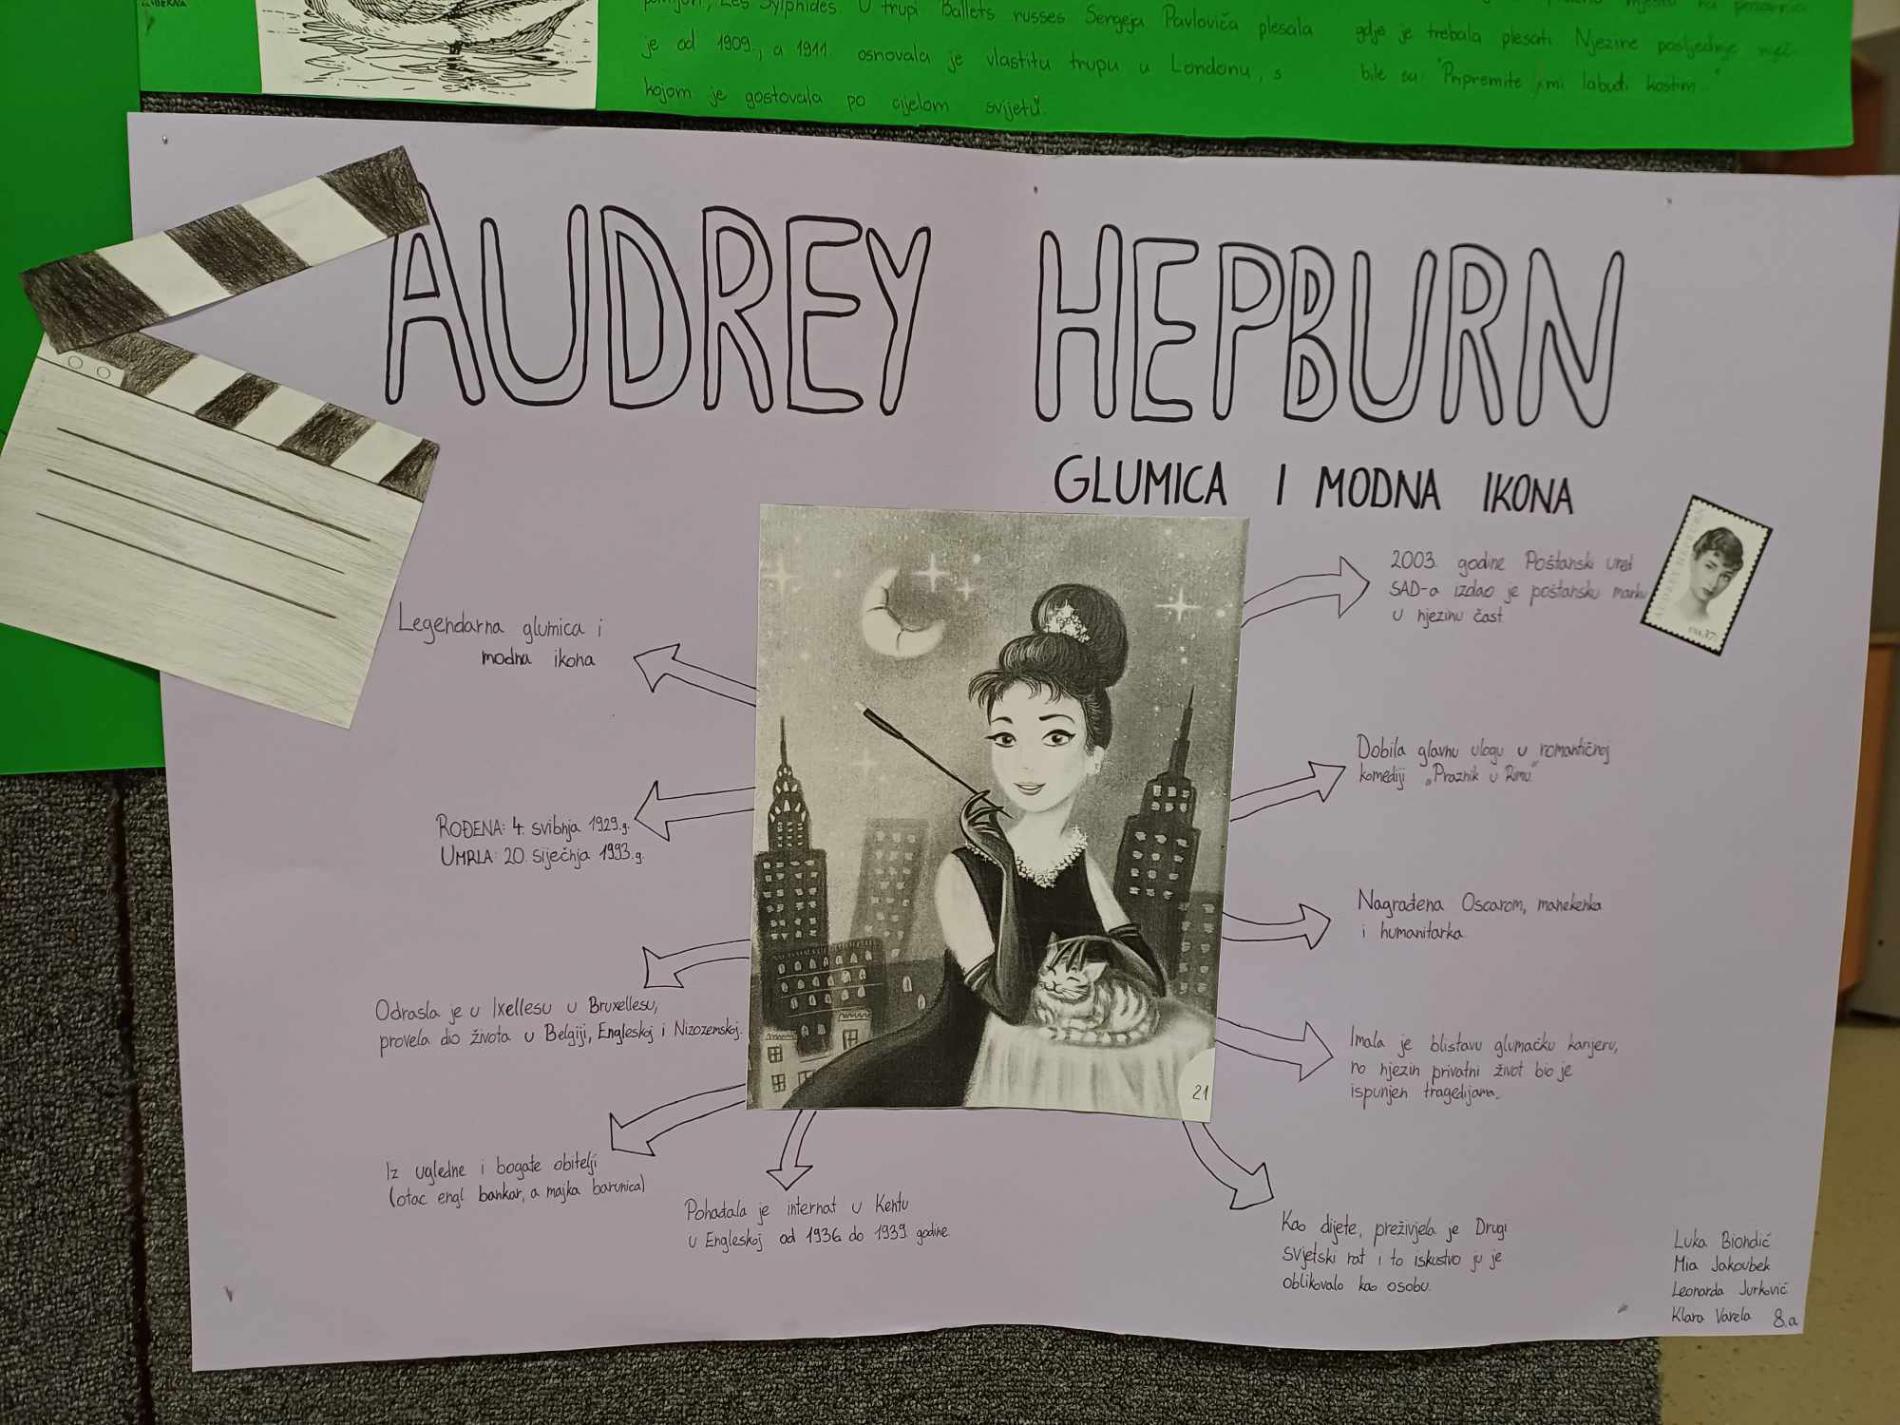 Les Sylphides. U trupi Ballets russes Sergeja Pavloviča plesala
je od 1909., a 1911. osnovala je vlastitu trupu u Londonu, s
kojom je gostovala po cijelom svijetu.
gdje je trebala plesati. Njezine posljednje riječi
bile su: "Pripremite mi labuđi kostim."
AUDREY HEPBURN
GLUMICA I MODNA IKONA
Legendarna glumica i
modna ikona
ROĐENA: 4. svibnja 1929.g.
UMRLA: 20. siječnja 1993.g.
Odrasla je u Ixellesu u Bruxellesu,
provela dio života u Belgiji, Engleskoj i Nizozemskoj.
Iz ugledne i bogate obitelji
(otac engl. bankar, a majka barunica)
Pohađala je internat u Kentu
u Engleskoj od 1936. do 1939. godine.
2003. godine Poštanski ured
SAD-a izdao je poštansku marku
u njezinu čast.
37
Dobila glavnu ulogu u romantičnoj
komediji „Praznik u Rimu"
Nagrađena Oscarom, manekenka
i humanitarka.
Imala je blistavu glumačku karijeru,
no njezin privatni život bio je
ispunjen tragedijama.
Kao dijete, preživjela je Drugi
svjetski rat i to iskustvo ju je
oblikovalo kao osobu.
21
Luka Biondić
Mia Jakoubek
Leonarda Jurković
Klara Varela 8.a